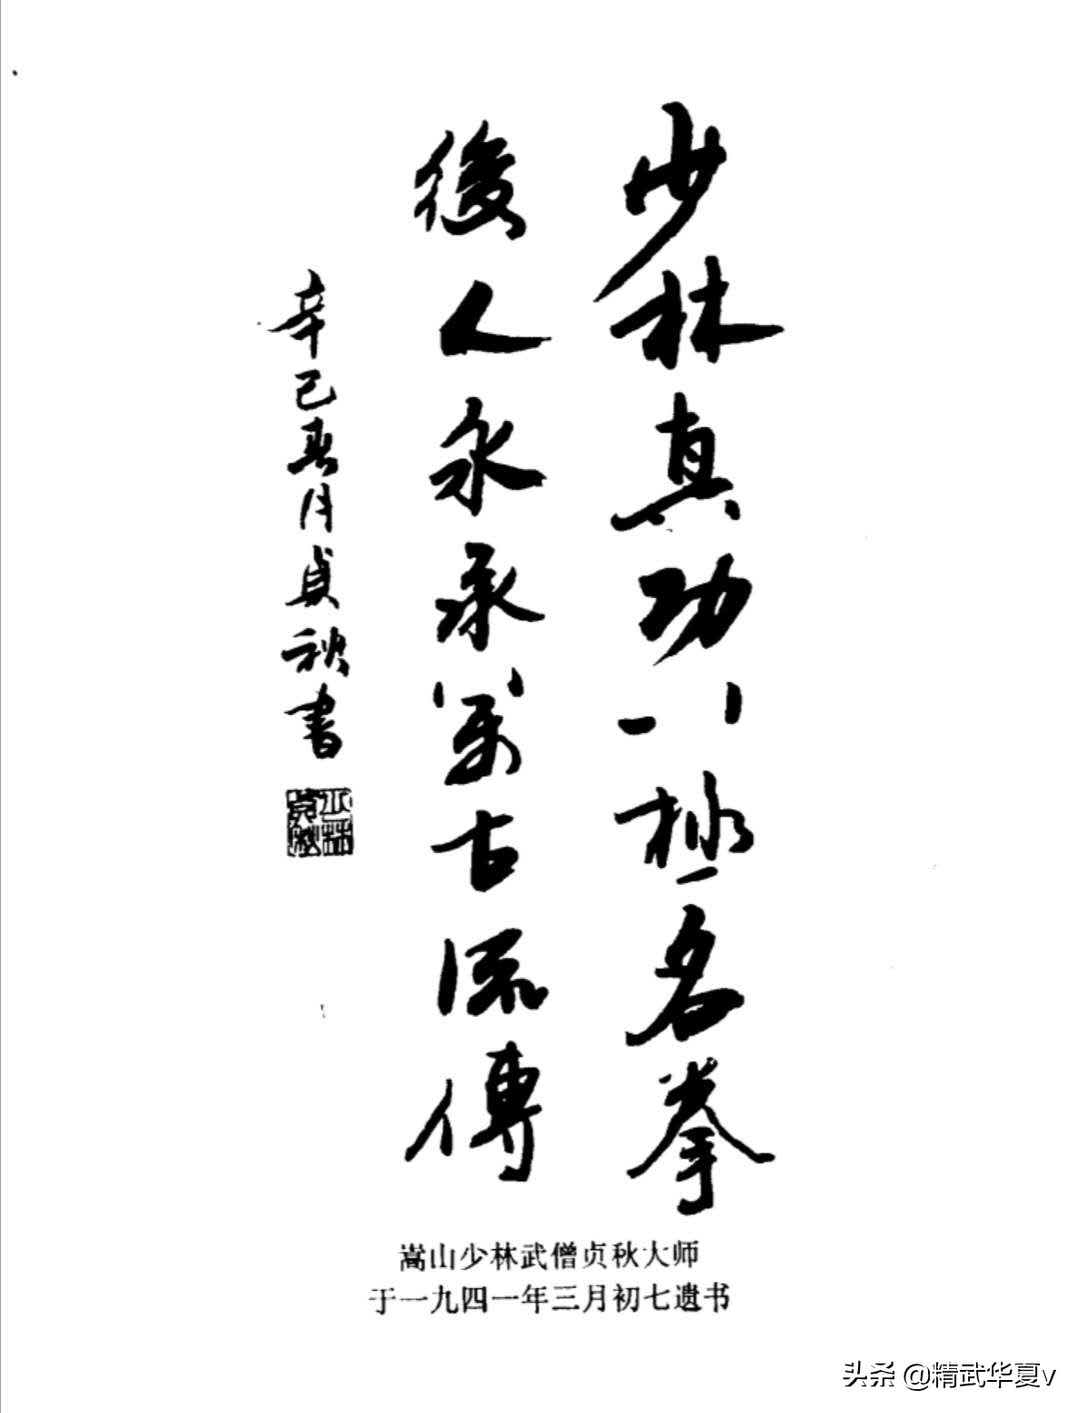 少林真功八極名拳
後人永承萬古流傳
辛巳春月貞秋書
少林
貞秋
嵩山少林武僧贞秋大师
于一九四一年三月初七遗书
头条 @精武华夏v